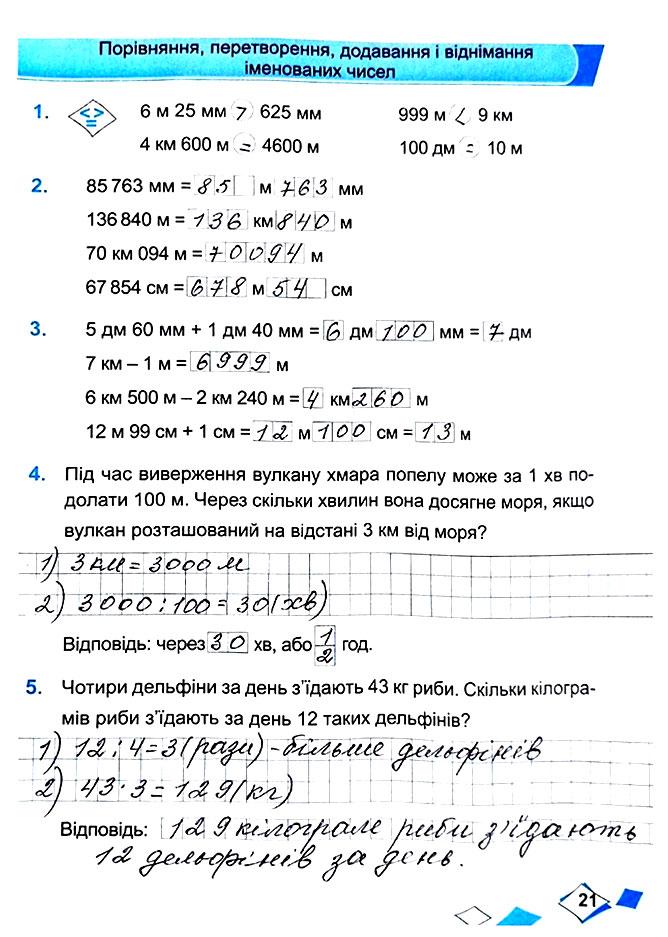 Порівняння, перетворення, додавання і віднімання
іменованих чисел
1. < > = 6 м 25 мм > 625 мм 999 м < 9 км
4 км 600 м = 4600 м 100 дм = 10 м
2. 85 763 мм = 85 м 763 мм
136 840 м = 136 км 840 м
70 км 094 м = 70094 м
67 854 см = 678 м 54 см
3. 5 дм 60 мм + 1 дм 40 мм = 6 дм 100 мм = 7 дм
7 км – 1 м = 6999 м
6 км 500 м – 2 км 240 м = 4 км 260 м
12 м 99 см + 1 см = 12 м 100 см = 13 м
4. Під час виверження вулкану хмара попелу може за 1 хв по-
долати 100 м. Через скільки хвилин вона досягне моря, якщо
вулкан розташований на відстані 3 км від моря?
1) 3 км = 3000 м
2) 3000 : 100 = 30 (хв)
Відповідь: через 30 хв, або 1/2 год.
5. Чотири дельфіни за день з'їдають 43 кг риби. Скільки кілогра-
мів риби з'їдають за день 12 таких дельфінів?
1) 12 : 4 = 3 (рази) - більше дельфінів
2) 43 · 3 = 129 (кг)
Відповідь: 129 кілограм риби з'їдають
12 дельфінів за день.
21